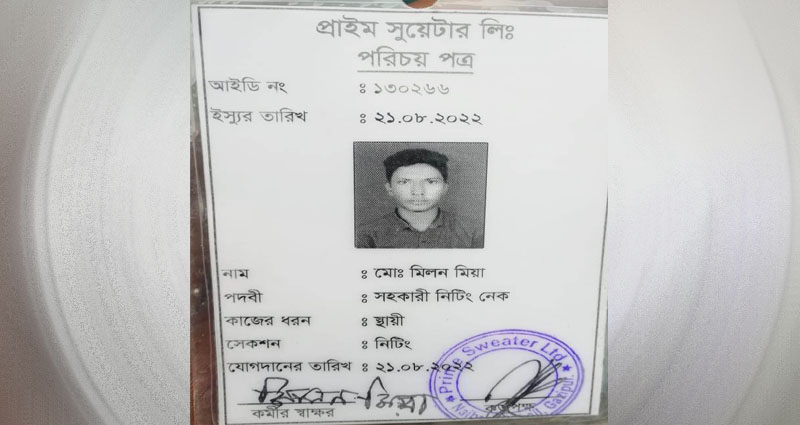 প্রাইম সুয়েটার লিঃ
পরিচয় পত্র
আইডি নং : ১৩০২৬৬
ইস্যুর তারিখ : ২১.০৮.২০২২
নাম : মোঃ মিলন মিয়া
পদবী : সহকারী নিটিং নেক
কাজের ধরন : স্থায়ী
সেকশন : নিটিং
যোগদানের তারিখ : ২১.০৮.২০২২
Prime Sweater Ltd.
Gazipur
মিলন মিয়া
কর্মীর স্বাক্ষর
কর্তৃপক্ষ